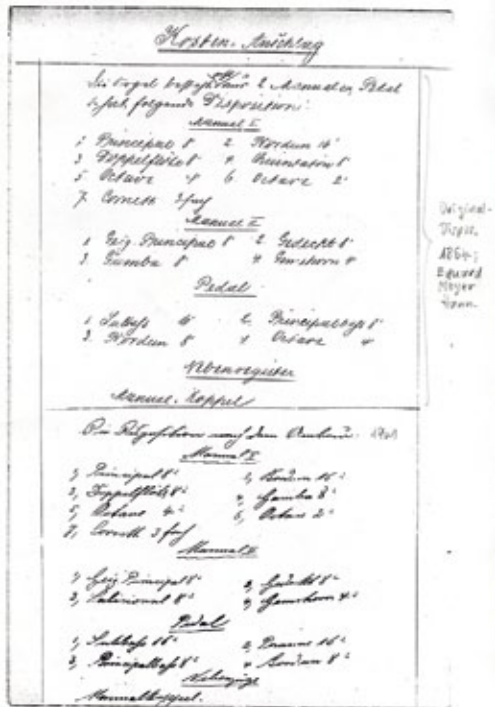 Kosten-Anschlag
Die Orgel 2 Manualen Pedal
folgende Disposition:
Manual I
1. Principal 8' 2. Bordun 16'
3. Doppelflöte 8' 4. 8'
5. Octave 4' 6. Octave 2'
7. Cornett 3fach
Manual II
1. Geig. Principal 8' 2. Gedeckt 8'
3. Gamba 8' 4. Gemshorn
Pedal
1. Subbaß 16' 2. Principalbaß 8'
3. Bordun 8 4. Octave 4
Nebenregister
Manual-Koppel
Original-
Dispos.
1864;
Eduard
Meyer
Hann.
Die Disposition nach dem
Manual I
1, Principal 8' 2, Bordun 16'
3, Doppelflöte 8' 4, Gamba 8'
5, Octave 4' 6, Octave 2'
7, Cornett 3fach
Manual II
1, Geig. Principal 8' 2, Gedeckt 8'
3, Salicional 8' 4, Gemshorn 4'
Pedal
1, Subbaß 16' 2, Posaune 16'
3, Principalbaß 8' 4, Bordun 8'
Nebenzüge
Manualkoppel.